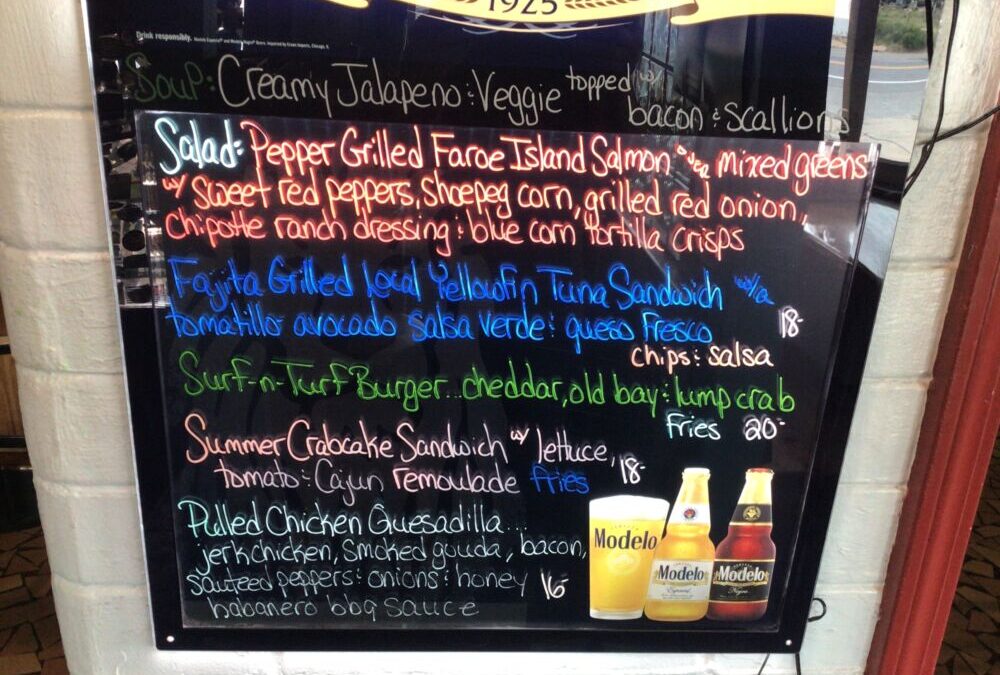 1925
Drink responsibly.
Soup: Creamy Jalapeno & Veggie topped w/
bacon & scallions
Salad: Pepper Grilled Faroe Island Salmon over mixed greens
w/ sweet red peppers, shoepeg corn, grilled red onion,
chipotle ranch dressing & blue corn tortilla crisps
Fajita Grilled local Yellowfin Tuna Sandwich w/a
tomatillo avocado salsa verde & queso Fresco 18-
chips & salsa
Surf-n-Turf Burger... cheddar, old bay & lump crab
Fries 20-
Summer Crabcake Sandwich w/ lettuce,
tomato & Cajun remoulade fries 18-
Pulled Chicken Quesadilla...
jerk chicken, smoked gouda, bacon,
sauteed peppers & onions & honey 16-
habanero bbq sauce
Modelo
Modelo
Especial
Modelo
Negra